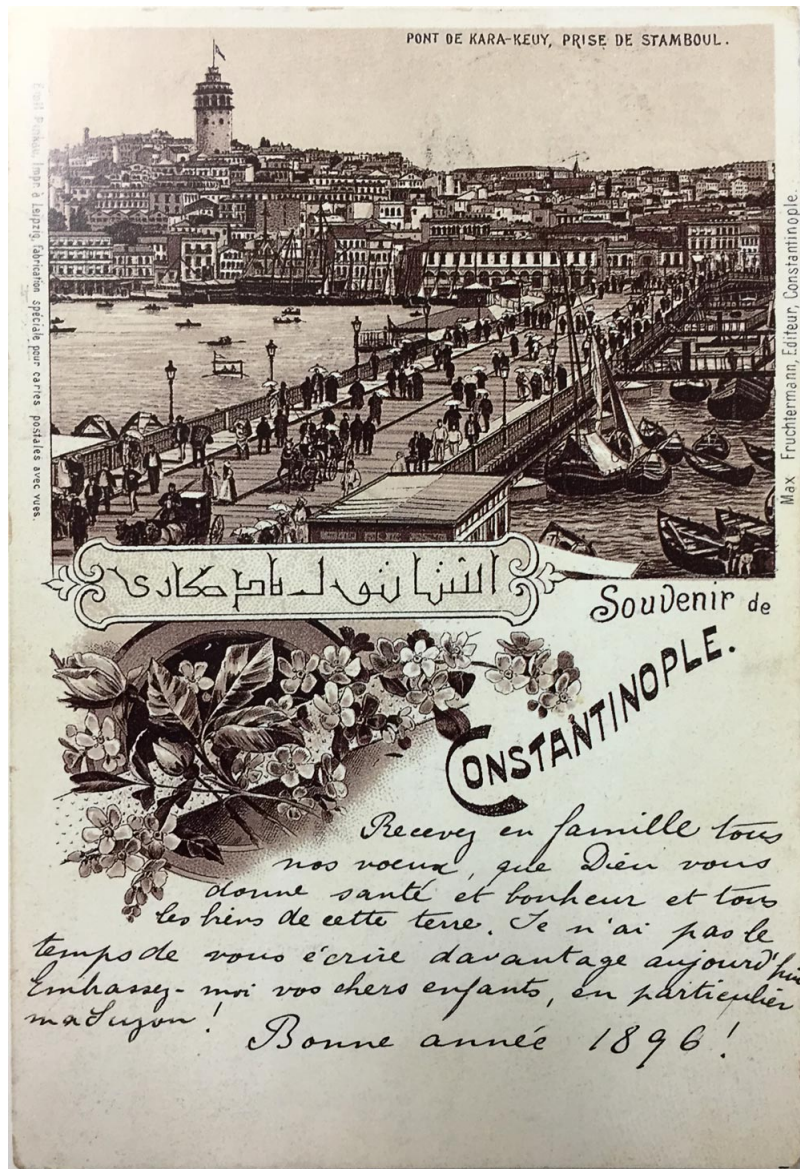 PONT DE KARA-KEUY, PRISE DE STAMBOUL.
Emil Pinkau, Impr. à Leipzig, Fabrication spéciale pour cartes postales avec vues.
Max Fruchtermann, Editeur, Constantinople.
Souvenir de
CONSTANTINOPLE.
Recevez en famille tous
nos voeux, que Dieu vous
donne santé et bonheur et tous
les biens de cette terre. Je n'ai pas le
temps de vous écrire davantage aujourd'hui
Embrassez-moi vos chers enfants, en particulier
ma Suzon !
Bonne année 1896 !